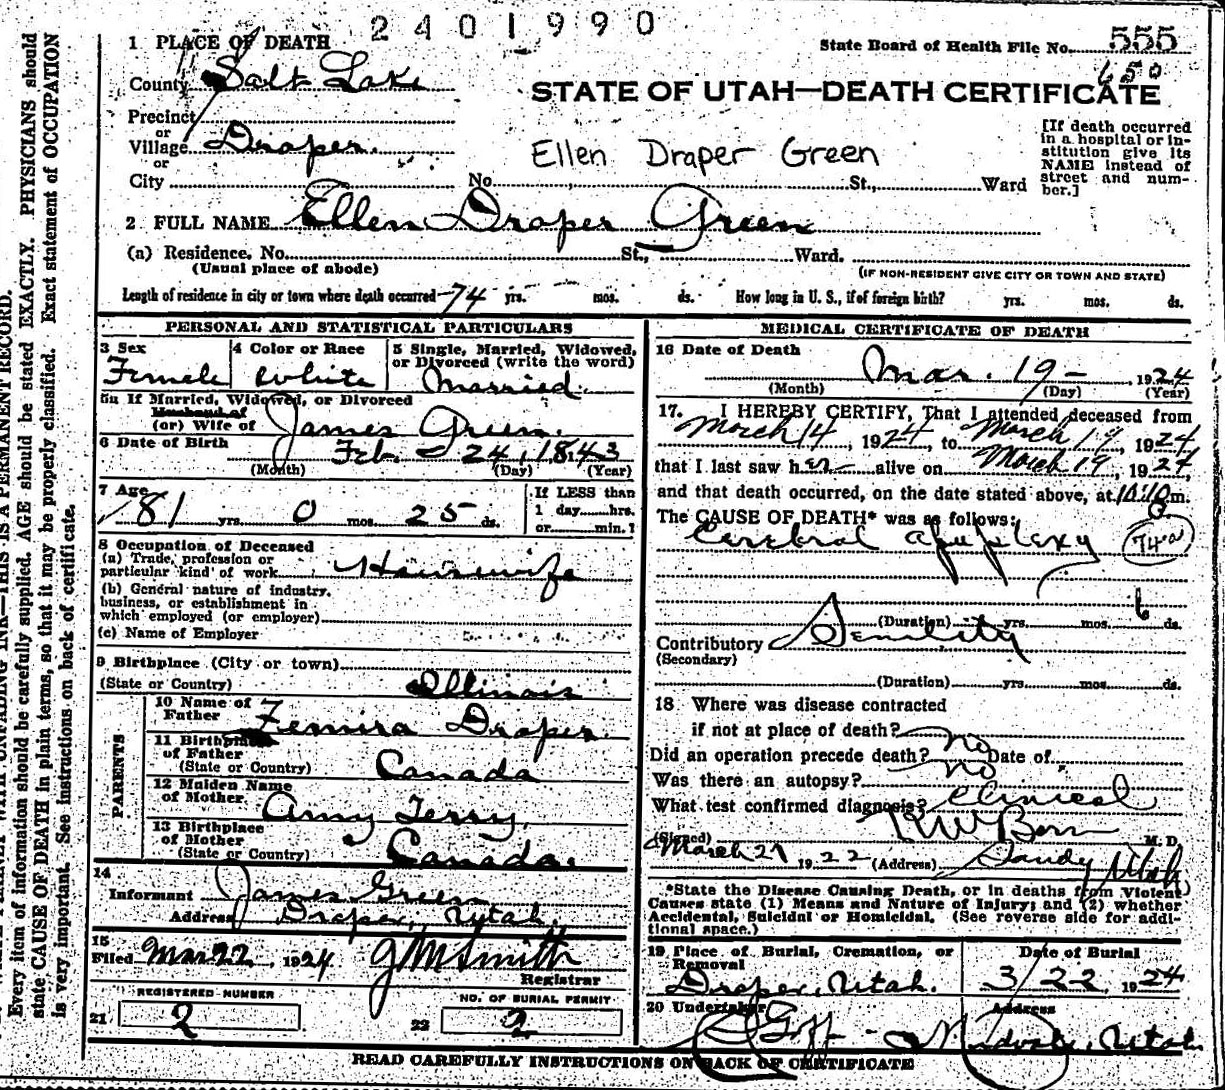 2401990
1 PLACE OF DEATH
State Board of Health File No. 555
650
County Salt Lake
STATE OF UTAH—DEATH CERTIFICATE
Precinct
or
Village Draper.
or
Ellen Draper Green
[If death occurred
in a hospital or in-
stitution give its
NAME instead of
street and num-
ber.]
City No. St., Ward
2 FULL NAME Ellen Draper Green
(a) Residence, No. St., Ward.
(Usual place of abode)
(IF NON-RESIDENT GIVE CITY OR TOWN AND STATE)
Length of residence in city or town where death occurred 74 yrs. mos. ds. How long in U. S., if of foreign birth? yrs. mos. ds.
PERSONAL AND STATISTICAL PARTICULARS
3 Sex
Female
4 Color or Race
White
5 Single, Married, Widowed,
or Divorced (write the word)
Married.
5a If Married, Widowed, or Divorced
Husband of
(or) Wife of James Green.
6 Date of Birth Feb. 24, 1843
(Month) (Day) (Year)
7 Age
81 yrs. 0 mos. 25 ds.
If LESS than
1 day......hrs.
or......min.?
8 Occupation of Deceased
(a) Trade, profession or
particular kind of work Housewife
(b) General nature of industry,
business, or establishment in
which employed (or employer)
(c) Name of Employer
9 Birthplace (City or town)
(State or Country) Illinois
PARENTS
10 Name of
Father Zemira Draper.
11 Birthplace
of Father
(State or Country) Canada
12 Maiden Name
of Mother Amy Terry.
13 Birthplace
of Mother
(State or Country) Canada.
14
Informant James Green
Address Draper, Utah.
15
Filed Mar 22, 1924 J M Smith
Registrar
REGISTERED NUMBER
21 2
NO. OF BURIAL PERMIT
22 2
MEDICAL CERTIFICATE OF DEATH
16 Date of Death
Mar. 19 - 1924
(Month) (Day) (Year)
17. I HEREBY CERTIFY, That I attended deceased from
March 14, 1924, to March 19, 1924,
that I last saw her alive on March 19, 1924,
and that death occurred, on the date stated above, at 10:10 m.
The CAUSE OF DEATH* was as follows:
Cerebral apoplexy 74a
(Duration) yrs. mos. 6 ds.
Contributory Senility
(Secondary)
(Duration) yrs. mos. ds.
18 Where was disease contracted
if not at place of death?
Did an operation precede death? no Date of
Was there an autopsy? no
What test confirmed diagnosis? Clinical
(Signed) M. D.
March 21 1922 (Address) Sandy Utah
*State the Disease Causing Death, or in deaths from Violent
Causes state (1) Means and Nature of Injury; and (2) whether
Accidental, Suicidal or Homicidal. (See reverse side for addi-
tional space.)
19 Place of Burial, Cremation, or
Removal
Draper, Utah.
Date of Burial
3/22 1924
20 Undertaker
Goff
Address
Midvale, Utah.
READ CAREFULLY INSTRUCTIONS ON BACK OF CERTIFICATE
WITH UNFADING INK—THIS IS A PERMANENT RECORD.
Every item of information should be carefully supplied. AGE should be stated EXACTLY. PHYSICIANS should
state CAUSE OF DEATH in plain terms, so that it may be properly classified. Exact statement of OCCUPATION
is very important. See instructions on back of certificate.